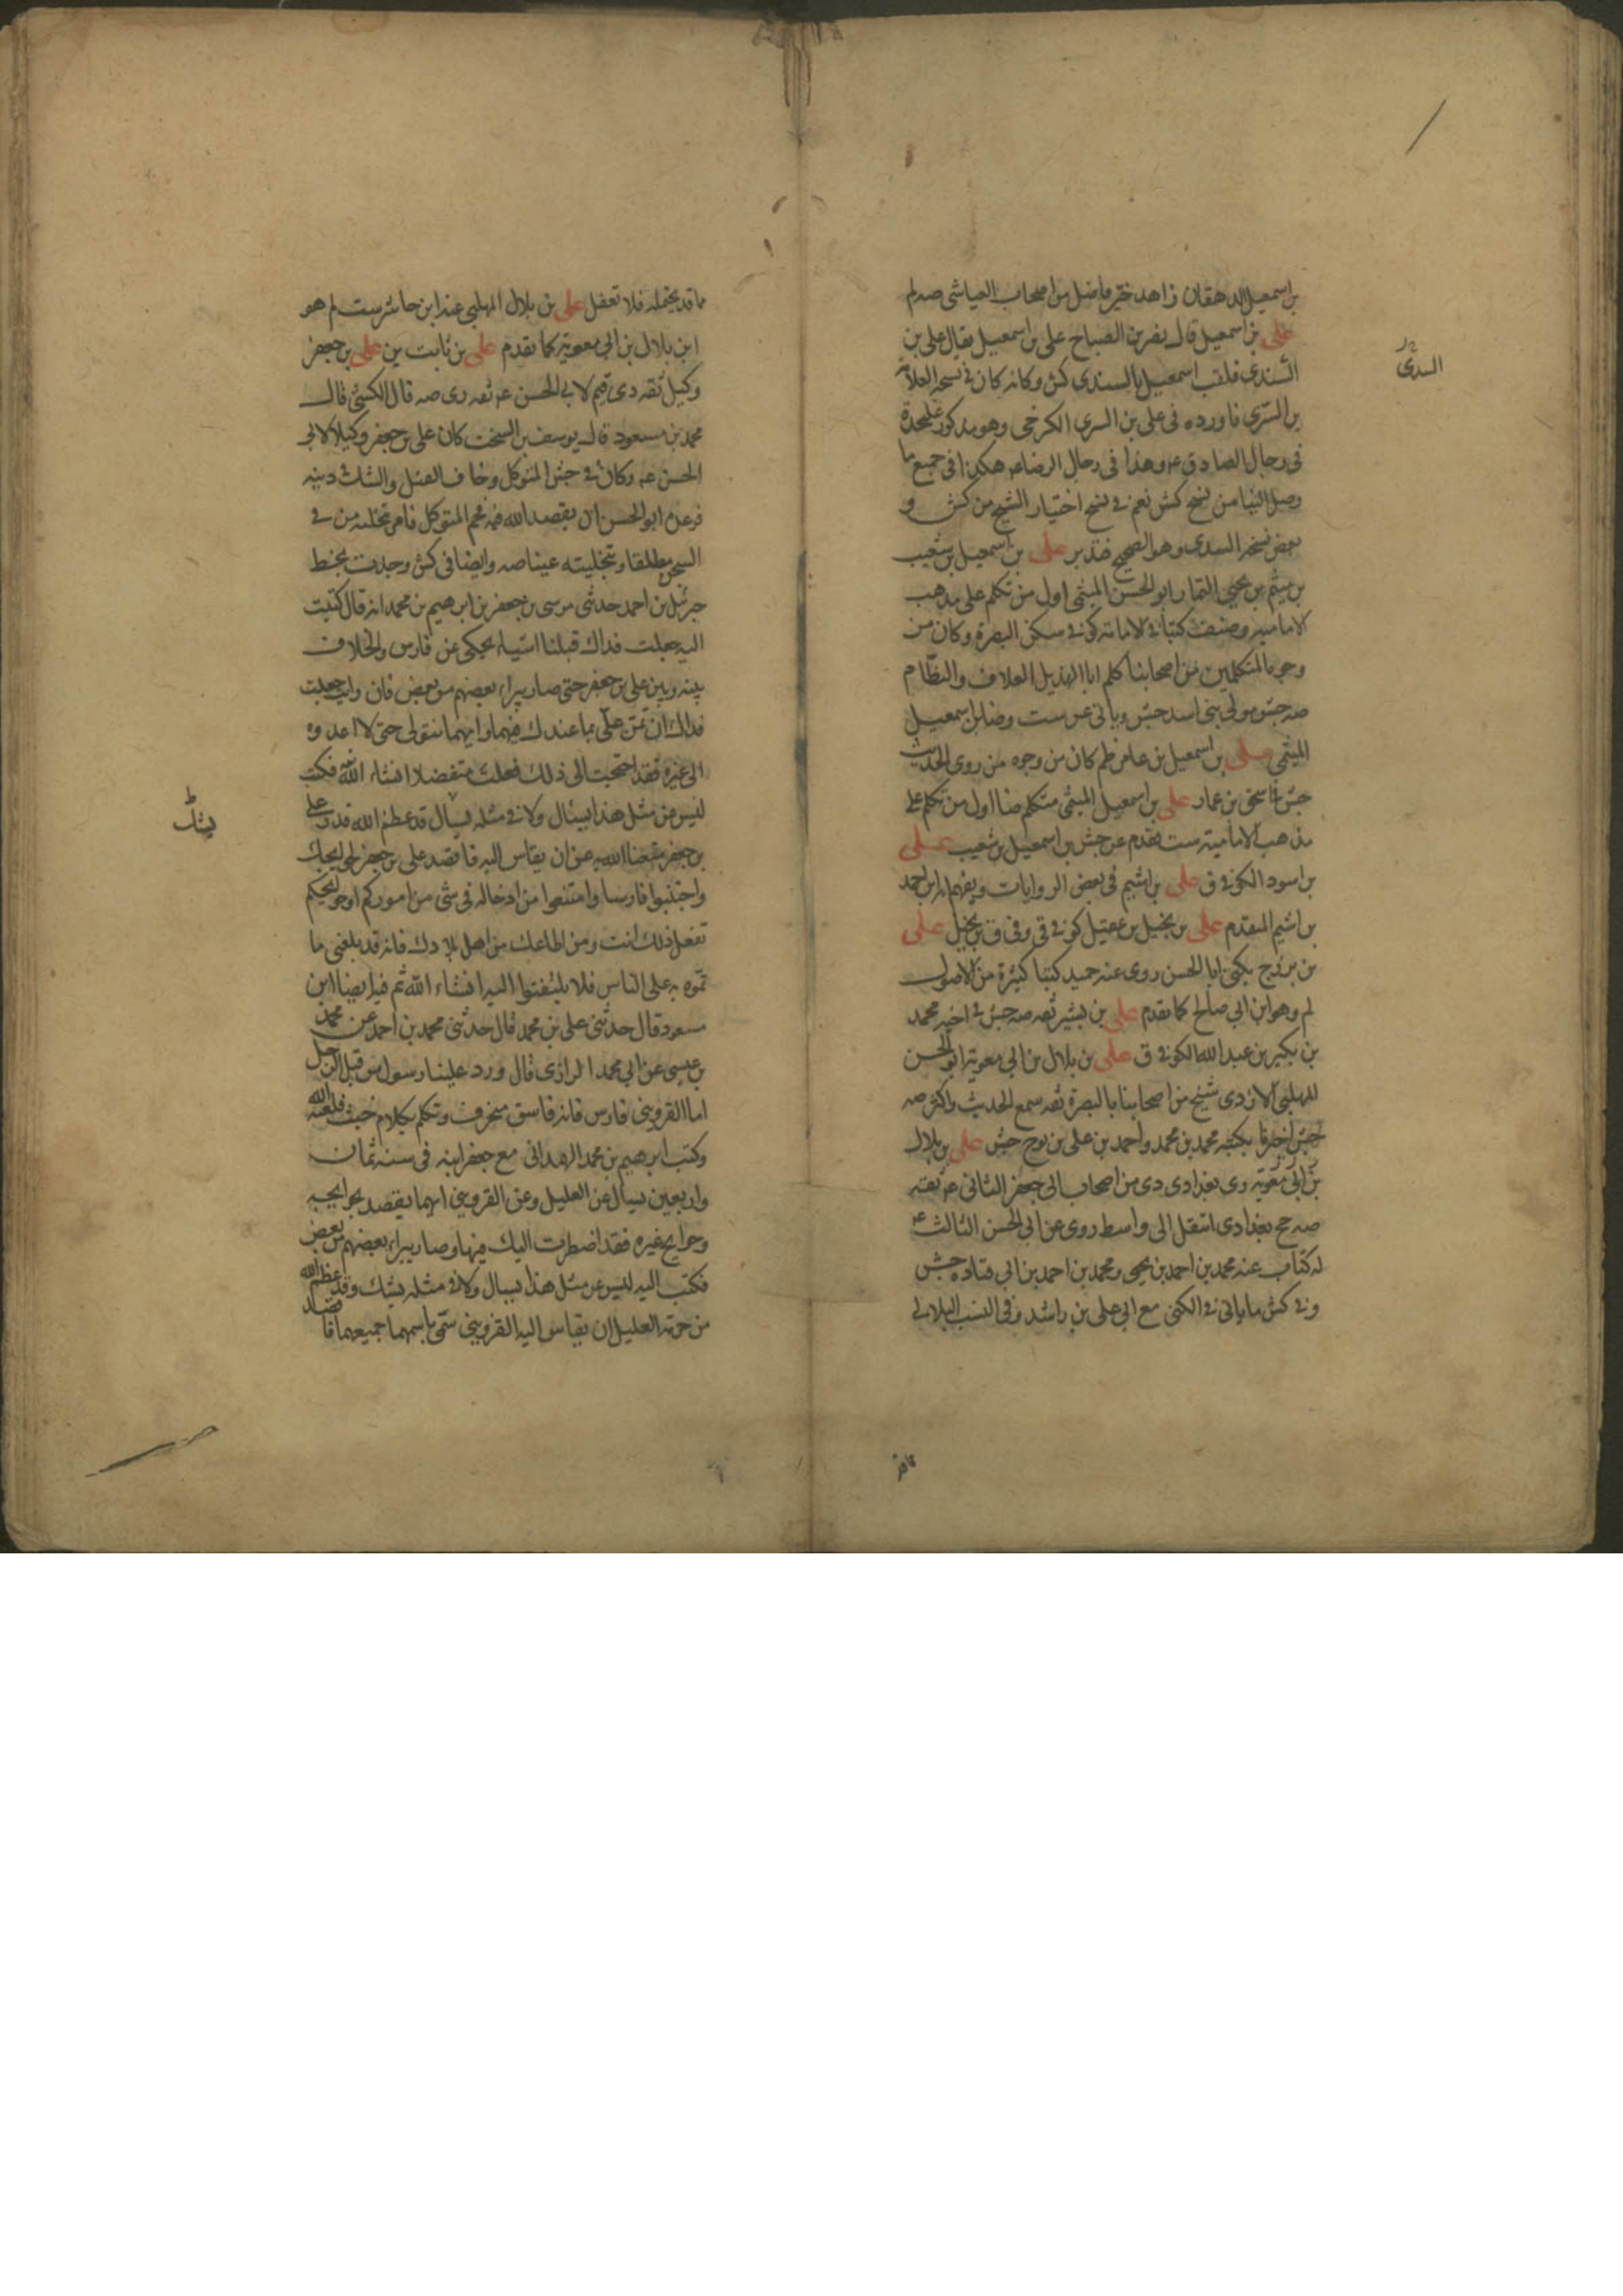 بن اسمعيل الدهقان زاهد خير فاضل من اصحاب العياشى صه لم
على بن اسمعيل قال نصر بن الصباح على بن اسمعيل يقال على بن
السندى فلقب اسمعيل بالسندى كش وكانه كان فى نسخه العلامه
السدى
بن السرى فاورده فى على بن السرى الكرخى وهو مذكور عليحدة
فى رجال الصادق عه وهذا فى رجال الرضا عه هكذا فى جميع ما
وصل الينا من نسخ كش نعم فى نسخ اختيار الشيخ من كش و
بعض نسخه السدى وهو الصحيح فتدبر على بن اسمعيل بن شعيب
بن ميثم بن يحيى التمار ابو الحسن الميثمى اول من تكلم على مذهب
الاماميه وصنف كتبا فى الامامة كوفى سكن البصرة وكان من
وجوه المتكلمين من اصحابنا كلم ابا الهذيل العلاف والنظام
صه جش مولى بنى اسد جش وياتى عن ست وضا ابن اسمعيل
الميثمى على بن اسمعيل بن عامر ظم كان من وجوه من روى الحديث
جش فى اسحق بن عمار على بن اسمعيل الميثمى متكلم ضا اول من تكلم على
مذهب الامامية ست تقدم عن جش بن اسمعيل بن شعيب على
بن اسود الكوفى ق على بن اشيم فى بعض الروايات ويفهم انه ابن احمد
بن اشيم المتقدم على بن بجيل بن عقيل كوفى قى وفى ق بن بجيل على
بن بزرج يكنى ابا الحسن روى عنه حميد كتبا كثيرة من الاصول
لم وهو ابن ابى صالح كما تقدم على بن بشير ثقه صه جش فى اخيه محمد
بن بكير بن عبد الله الكوفى ق على بن بلال بن ابى معوية ابو الحسن
المهلبى الازدى شيخ من اصحابنا بالبصرة ثقه سمع الحديث واكثر صه
جش اخبرنا بكتبه محمد بن محمد واحمد بن على بن نوح جش على بن بلال
بن ابى معوية رى بغدادى دى من اصحاب ابى جعفر الثانى عه ثقته
صه جخ بغدادى انتقل الى واسط روى عن ابى الحسن الثالث عه
له كتاب عنه محمد بن احمد بن يحيى ومحمد بن احمد بن ابى قتاده جش
وفى كش ما ياتى فى الكنى مع ابى على بن راشد وفى النسب البلالى
ما قد يحتمله فلا تغفل على بن بلال المهلبى عند ابن حاشر ست لم هو
ابن بلال بن ابى معوية كما تقدم على بن ثابت ين على بن جعفر
وكيل ثقه دى قيم لابى الحسن عه ثقه رى صه قال الكشى قال
محمد بن مسعود قال يوسف بن السخت كان على بن جعفر وكيلا لابى
الحسن عه وكان فى حبس المتوكل وخاف القتل والشك فى دينه
فوعده ابو الحسن ان يقصد الله فيه فحم المتوكل فامر بتخلية من فى
السجن مطلقا وبتخليته عينا صه وايضا فى كش وجدت بخط
جبرئيل بن احمد حدثنى موسى بن جعفر بن ابرهيم بن محمد انه قال كتبت
اليه جعلت فداك قبلنا اشياء يحكى عن فارس والخلاف
بينه وبين على بن جعفر حتى صار يبراء بعضهم من بعض فان رايت جعلت
فداك ان تمن على بما عندك فيهما وايهما نتولى حتى لا اعدوه
الى غيره فقد احتجت الى ذلك فعلت متفضلا انشاء الله فكتب
ليس عن مثل هذا يسال ولا فى مثله يسال قد عظم الله قدر على
يشك
بن جعفر متعنا الله به عن ان يقاس اليه فاقصد على بن جعفر لحوايجك
واجتنبوا فارسا وامتنعوا من ادخاله فى شى من اموركم او حوايجكم
تفعل ذلك انت ومن اطاعك من اهل بلادك فانه قد بلغنى ما
تموه به على الناس فلا يلتفتوا اليه انشاء الله ثم فيه ايضا ابن
مسعود قال حدثنى على بن محمد قال حدثنى محمد بن احمد عن محمد
بن عيسى عن ابى محمد الرازى قال ورد علينا رسول من قبل الرجل
اما القزوينى فارس فانه فاسق منحرف وتكلم بكلام خبيث فلعنه الله
وكتب ابرهيم بن محمد الهمدانى مع جعفر ابنه فى سنه ثمان
واربعين يسال عن العليل وعن القزوينى ايهما يقصد بحوايجه
وحوايج غيره فقد اضطربت اليك فيهما وصار يبراء بعضهم من بعض
فكتب اليه ليس عن مثل هذا يسال ولا فى مثله يشك وقد عظم الله
من حرمة العليل ان يقاس اليه القزوينى سمى باسمهما جميعهما فاقصد